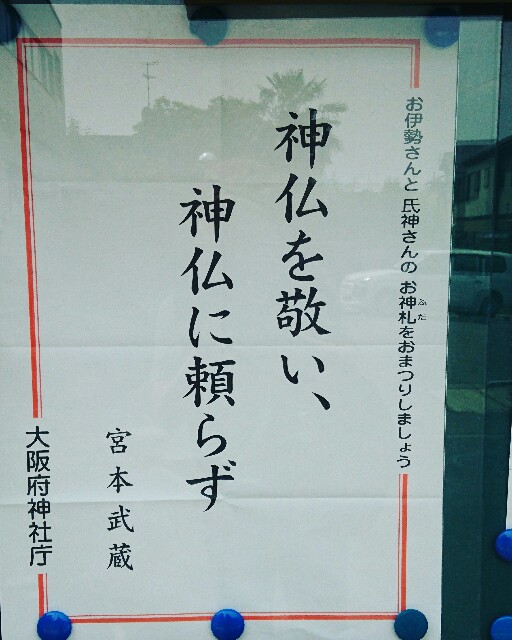 お伊勢さんと氏神さんのお神札をおまつりしましょう
ふだ
神仏を敬い、
神仏に頼らず
宮本武蔵
大阪府神社庁